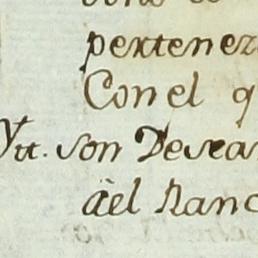 pertenez
Con el q
Ytt. son Desea
àel Ranc